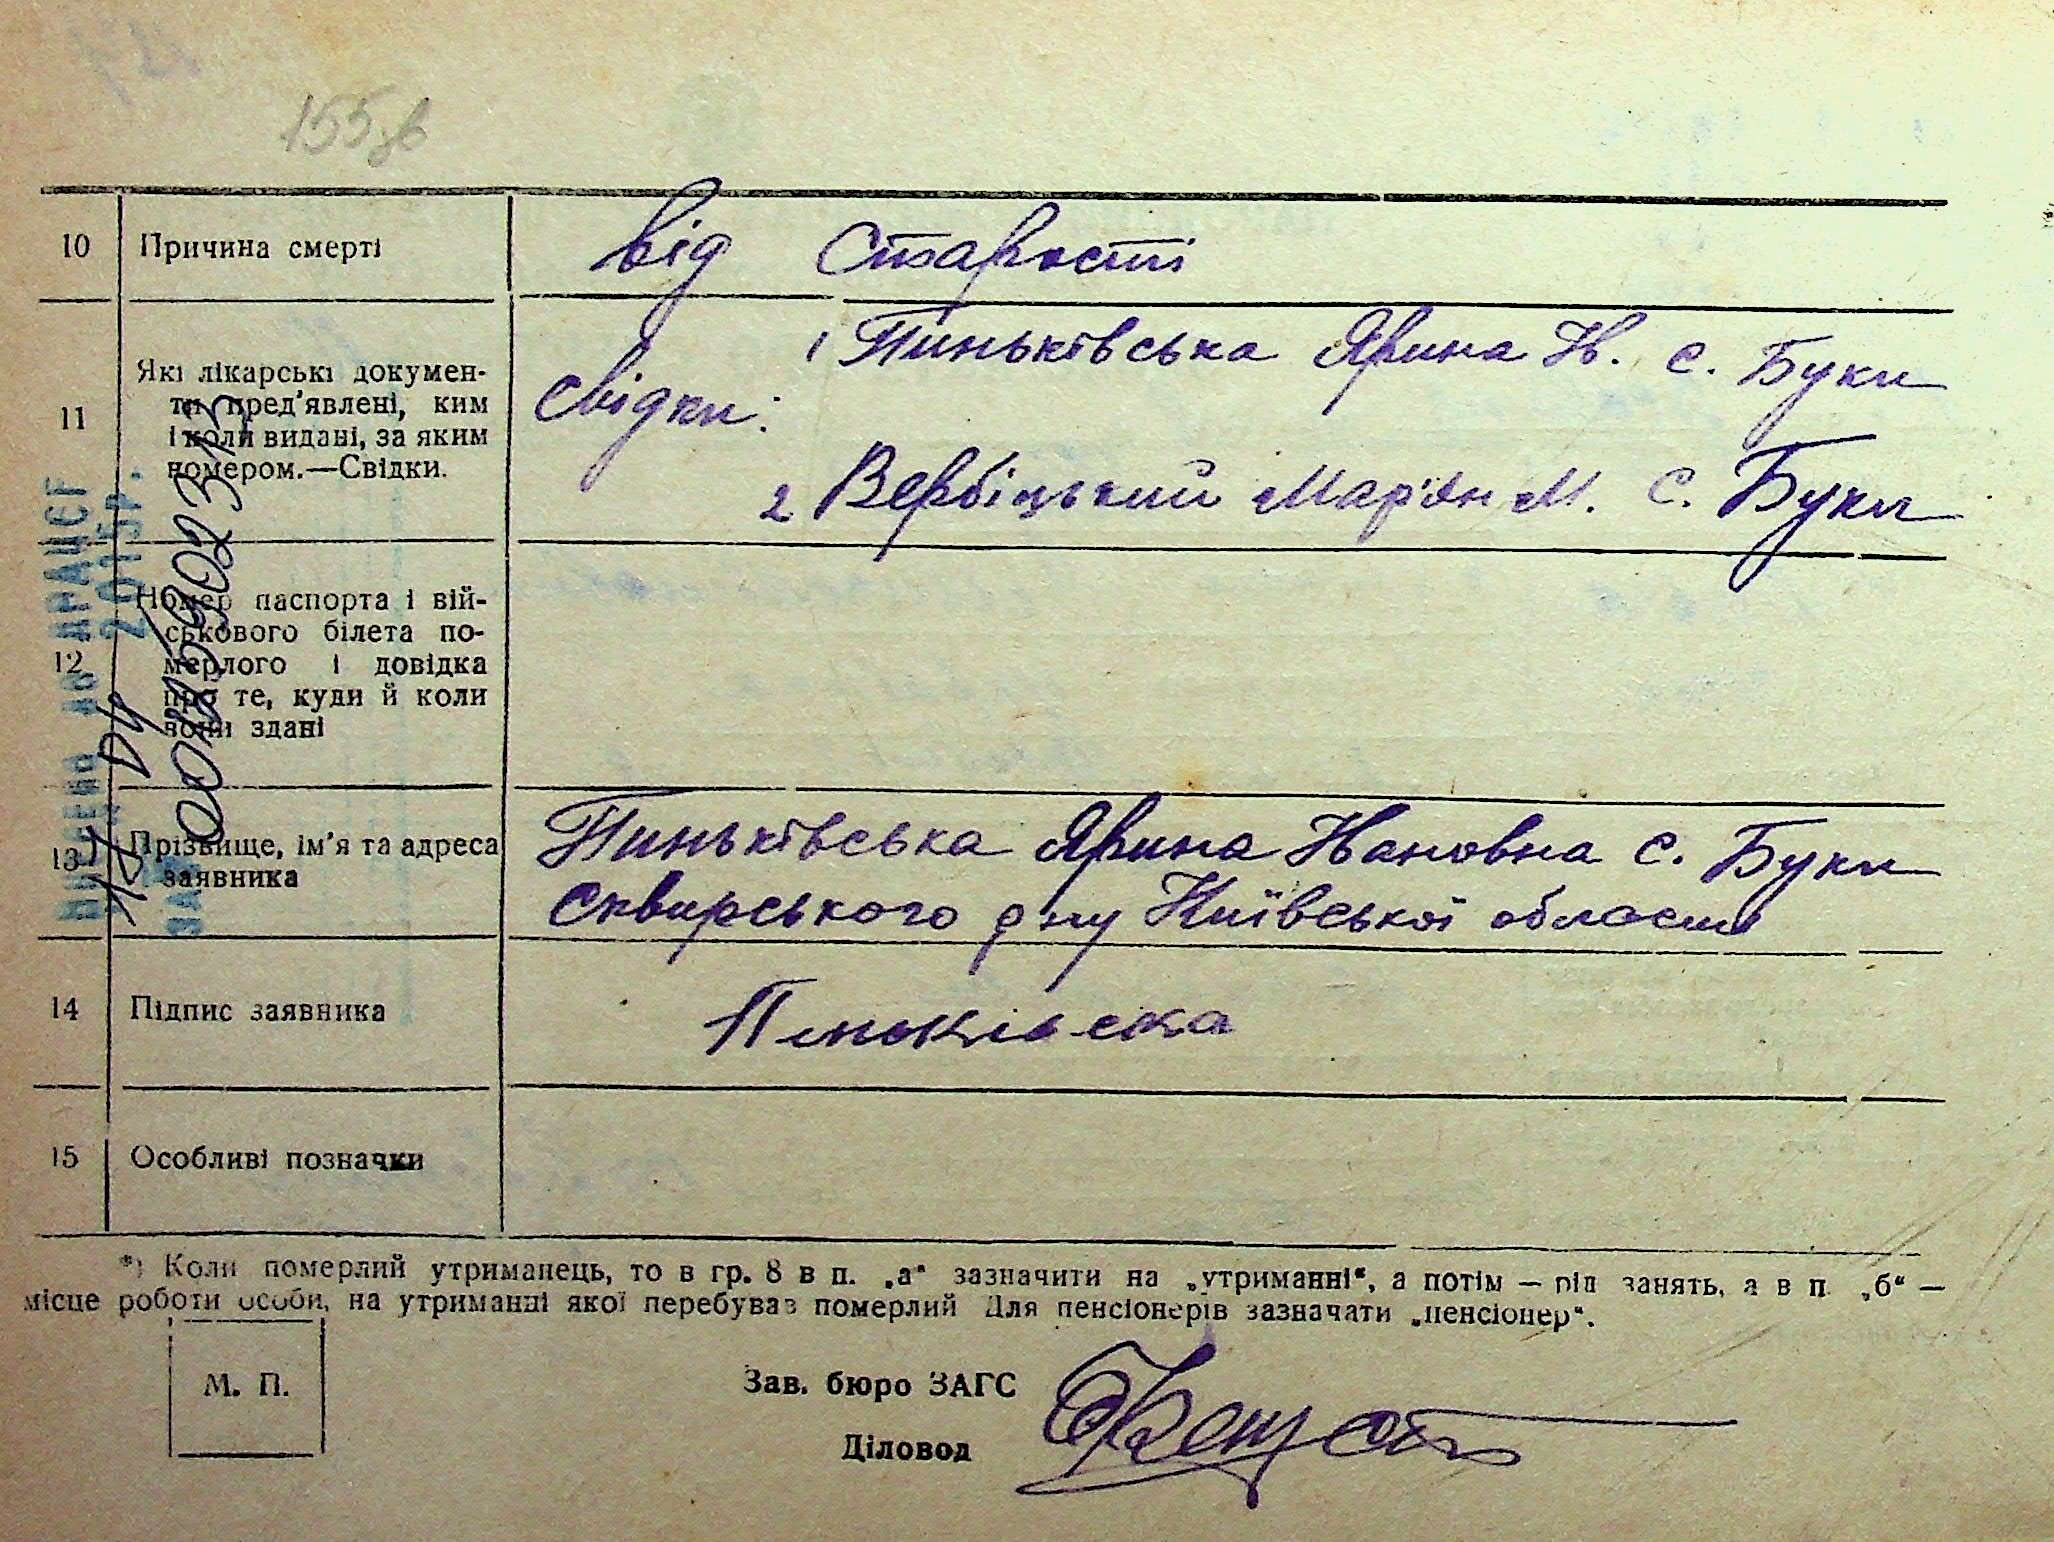 155зв
10 Причина смерті від старости
11 Які лікарські докумен-
ти пред'явлені, ким
і коли видані, за яким
номером.—Свідки.
Свідки: 1 Пиньківська Ярина Н. с. Буки
2 Вербіцький Мар'ян М. с. Буки
12 Номер паспорта і вій-
ськового білета по-
мерлого і довідка
про те, куди й коли
вони здані
13 Прізвище, ім'я та адреса
заявника
Пиньківська Ярина Івановна с. Буки
Сквирського р ну Київської области
14 Підпис заявника
15 Особливі позначки
*) Коли померлий утриманець, то в гр. 8 в п. „а“ зазначити на „утриманні“, а потім — рід занять, а в п. „б“ —
місце роботи особи, на утриманні якої перебував померлий Для пенсіонерів зазначати „пенсіонер“.
М. П.
Зав. бюро ЗАГС
Діловод
ДРАЦСГ
201 р.
00145902313